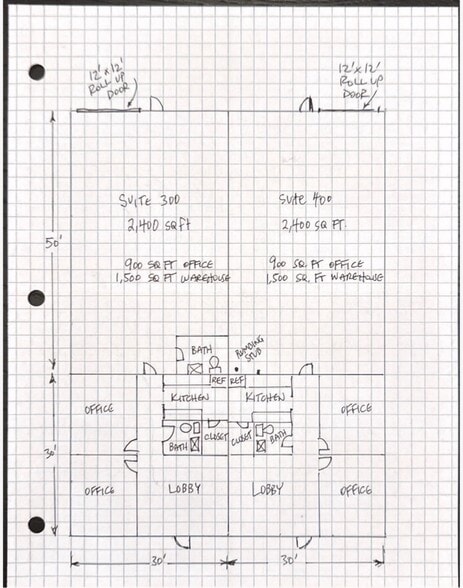 12'x12'
ROLL UP
DOOR
12'x12'
ROLL UP
DOOR
SUITE 300
2,400 SQ FT
900 SQ FT OFFICE
1,500 SQ FT WAREHOUSE
SUITE 400
2,400 SQ FT.
900 SQ. FT OFFICE
1,500 SQ. FT WAREHOUSE
50'
BATH
PLUMBING
STUB
REF
REF
KITCHEN
KITCHEN
OFFICE
OFFICE
30'
BATH
CLOSET
CLOSET
BATH
OFFICE
LOBBY
LOBBY
OFFICE
30'
30'